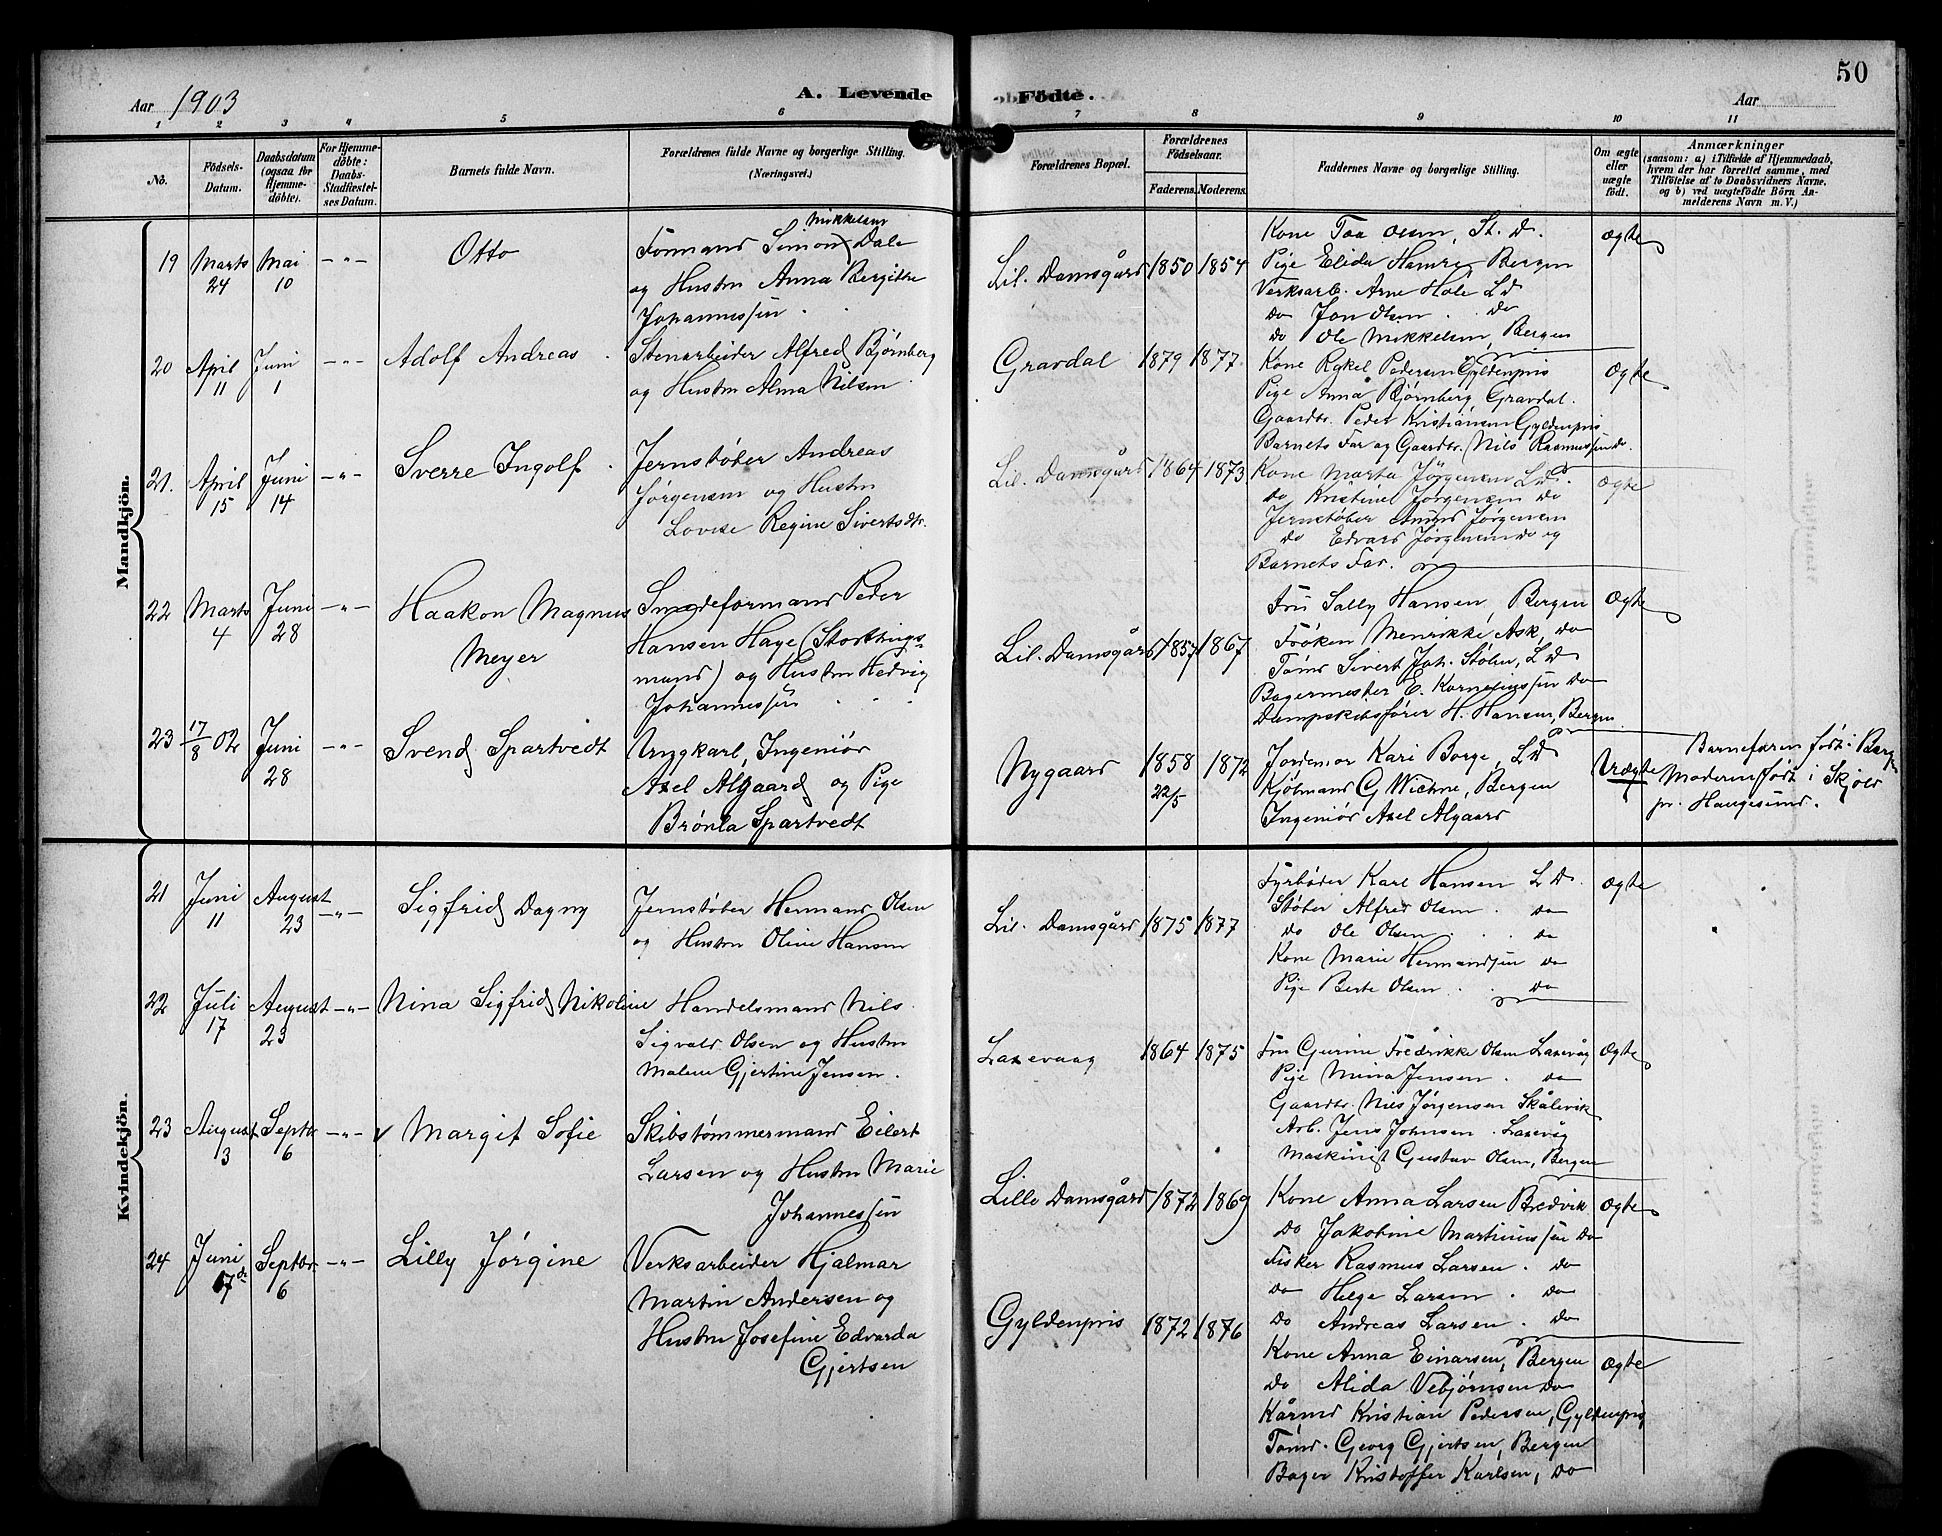 50
Aar 1903
A. Levende Födte.
Aar
1 2 3 4 5 6 7 8 9 10 11
No.
Födsels-Datum.
Daabsdatum (ogsaa for Hjemmedöbte).
For Hjemmedöbte: Daabs-Stadfæstelses Datum.
Barnets fulde Navn.
Forældrenes fulde Navne og borgerlige Stilling.
(Næringsvei.)
Forældrenes Bopæl.
Forældrenes Födselsaar.
Faderens. Moderens.
Faddernes Navne og borgerlige Stilling.
Om ægte eller uægte födt.
Anmærkninger
(saasom: a) i Tilfælde af Hjemmedaab, hvem der har forrettet samme, med Tilföielse af to Daabsvidners Navne, og b) ved uægtefödte Börn Anmelderens Navn m. V.)
Mandkjön.
19 Marts 24 Mai 10 – " –
Otto
Mikkelsen
Formand Simon Dale
og Hustru Anna Bergitte
Johannessen
Lil. Damsgård 1850 1854
Kone Toa Olsen, St. D.
Pige Elida Hamre, Bergen
Verksarb. Arne Hole L D
do Jon Olsen do
do Ole Mikkelsen, Bergen
Ægte
20 April 11 Juni 1 – " –
Adolf Andreas
Stenarbeider Alfred Bjørnberg
og Hustru Alma Nilsen
Gravdal 1879 1877
Kone Rakel Pedersen Gyldenpris
Pige Anna Bjørnberg Gravdal.
Gaardbr. Peder Kristiansen Gyldenpris
Barnets Far og Gaardbr. Nils Rasmussen do
Ægte
21. April 15 Juni 14 – " –
Sverre Ingolf
Jernstøber Andreas
Jørgensen og Hustru
Lovise Regine Sivertsdtr.
Lil. Damsgård 1864 1873
Kone Marta Jørgensen L D.
do Kristine Jørgensen do
Jernstøber Amund Jørgensen
do Edvard Jørgensen do og
Barnets Far.
Ægte
22 Marts 4 Juni 28 – " –
Haakon Magnus
Meyer
Smedeformand Peder
Hansen Hage (Storthings-
mand) og Hustru Hedvig
Johannessen
Lil. Damsgård 1857 1867
Fru Sally Hansen, Bergen
Frøken Henrikke Ask, do
Tømd Sivert Joh. Støle, L D
Bagermester E. Korneliussen do
Dampskibsfører H. Hansen, Bergen
Ægte
23 17/8 02 Juni 28 – " –
Svend Spartvedt
Ungkarl, Ingeniør
Axel Algaard og Pige
Brønla Spartvedt
Nygaard 1858 22/5 1872
Jordemor Kari Borge, L D
Kjøbmand G Wichne, Bergen
Ingeniør Axel Algaard
Uægte
Barnefaren født i Bergen
Moderen født i Skjold
pr. Haugesund.
Kvindekjön.
21 Juni 11 August 23 – " –
Sigfrid Dagny
Jernstøber Hermand Olsen
og Hustru Oline Hansen
Lil. Damsgård 1875 1877
Fyrbøder Karl Hansen L D.
Støber Alfred Olsen do
do Ole Olsen do
Kone Marie Hermandsen do
Pige Berte Olsen do
Ægte
22 Juli 17 August 23 – " –
Nina Sigfrid Nikoline
Handelsmand Nils
Sigvald Olsen og Hustru
Malene Gjertine Jensen.
Laxevaag 1864 1875
Fru Gurine Fredrikke Olsen Laxevåg
Pige Mina Jensen do
Gaardbr. Nils Jørgensen Skålevik
Arb. Jens Johnsen Laxevåg
Maskinist Gustav Olsen, Bergen
Ægte
23 August 3 Septbr 6 – " – v
Margit Sofie
Skibstømmermand Eilert
Larsen og Hustru Marie
Johannessen
Lille Damsgård 1872 1869
Kone Anna Larsen Bredvik
do Jakobine Martinussen do
Fisker Rasmus Larsen do
do Helge Larsen do
do Andreas Larsen do
Ægte
24 Juni 17de Septbr 6 – " –
Lilly Jørgine
Verksarbeider Hjalmar
Martin Andersen og
Hustru Josefine Edvarda
Gjertsen
Gyldenpris 1872 1876
Kone Anna Einarsen, Bergen
do Alida Vebjørnsen do
Kårmd Kristian Pedersen, Gyldenpris
Tømd. Georg Gjertsen, Bergen
Bager Kristoffer Karlsen, do
Ægte